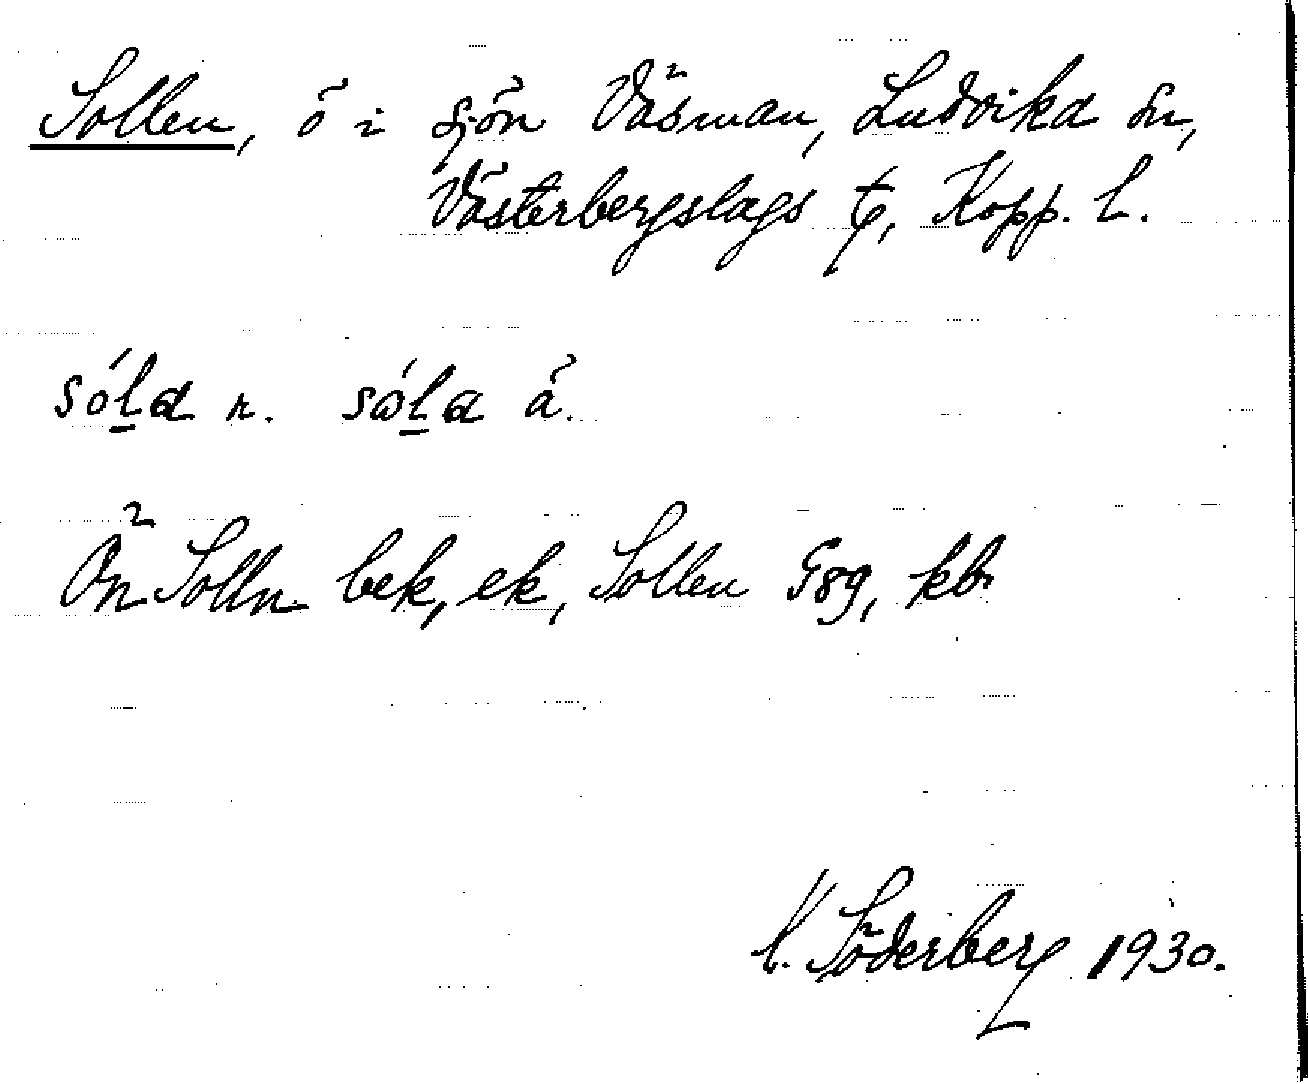 Sollen, ö i sjön Väsman, Ludvika sn,
Västerbergslags tg, Kopp. l.
sóla n. sóla ä.
Ön Solln bek, ek, Sollen G89, kbr
K. Söderberg 1930.